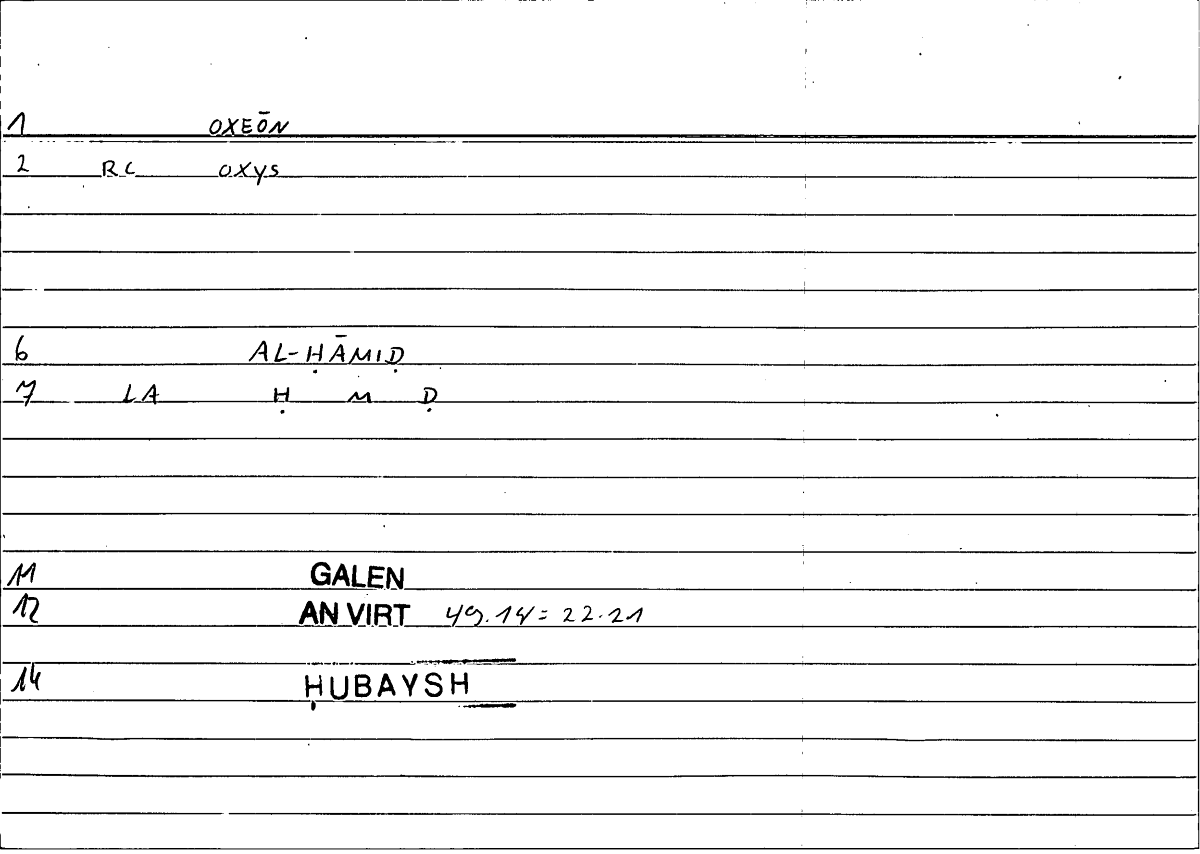 1 OXEŌN
2 RC OXYS
6 AL-ḤĀMIḌ
7 LA Ḥ M Ḍ
11 GALEN
12 AN VIRT 49.14 = 22.21
14 ḤUBAYSH